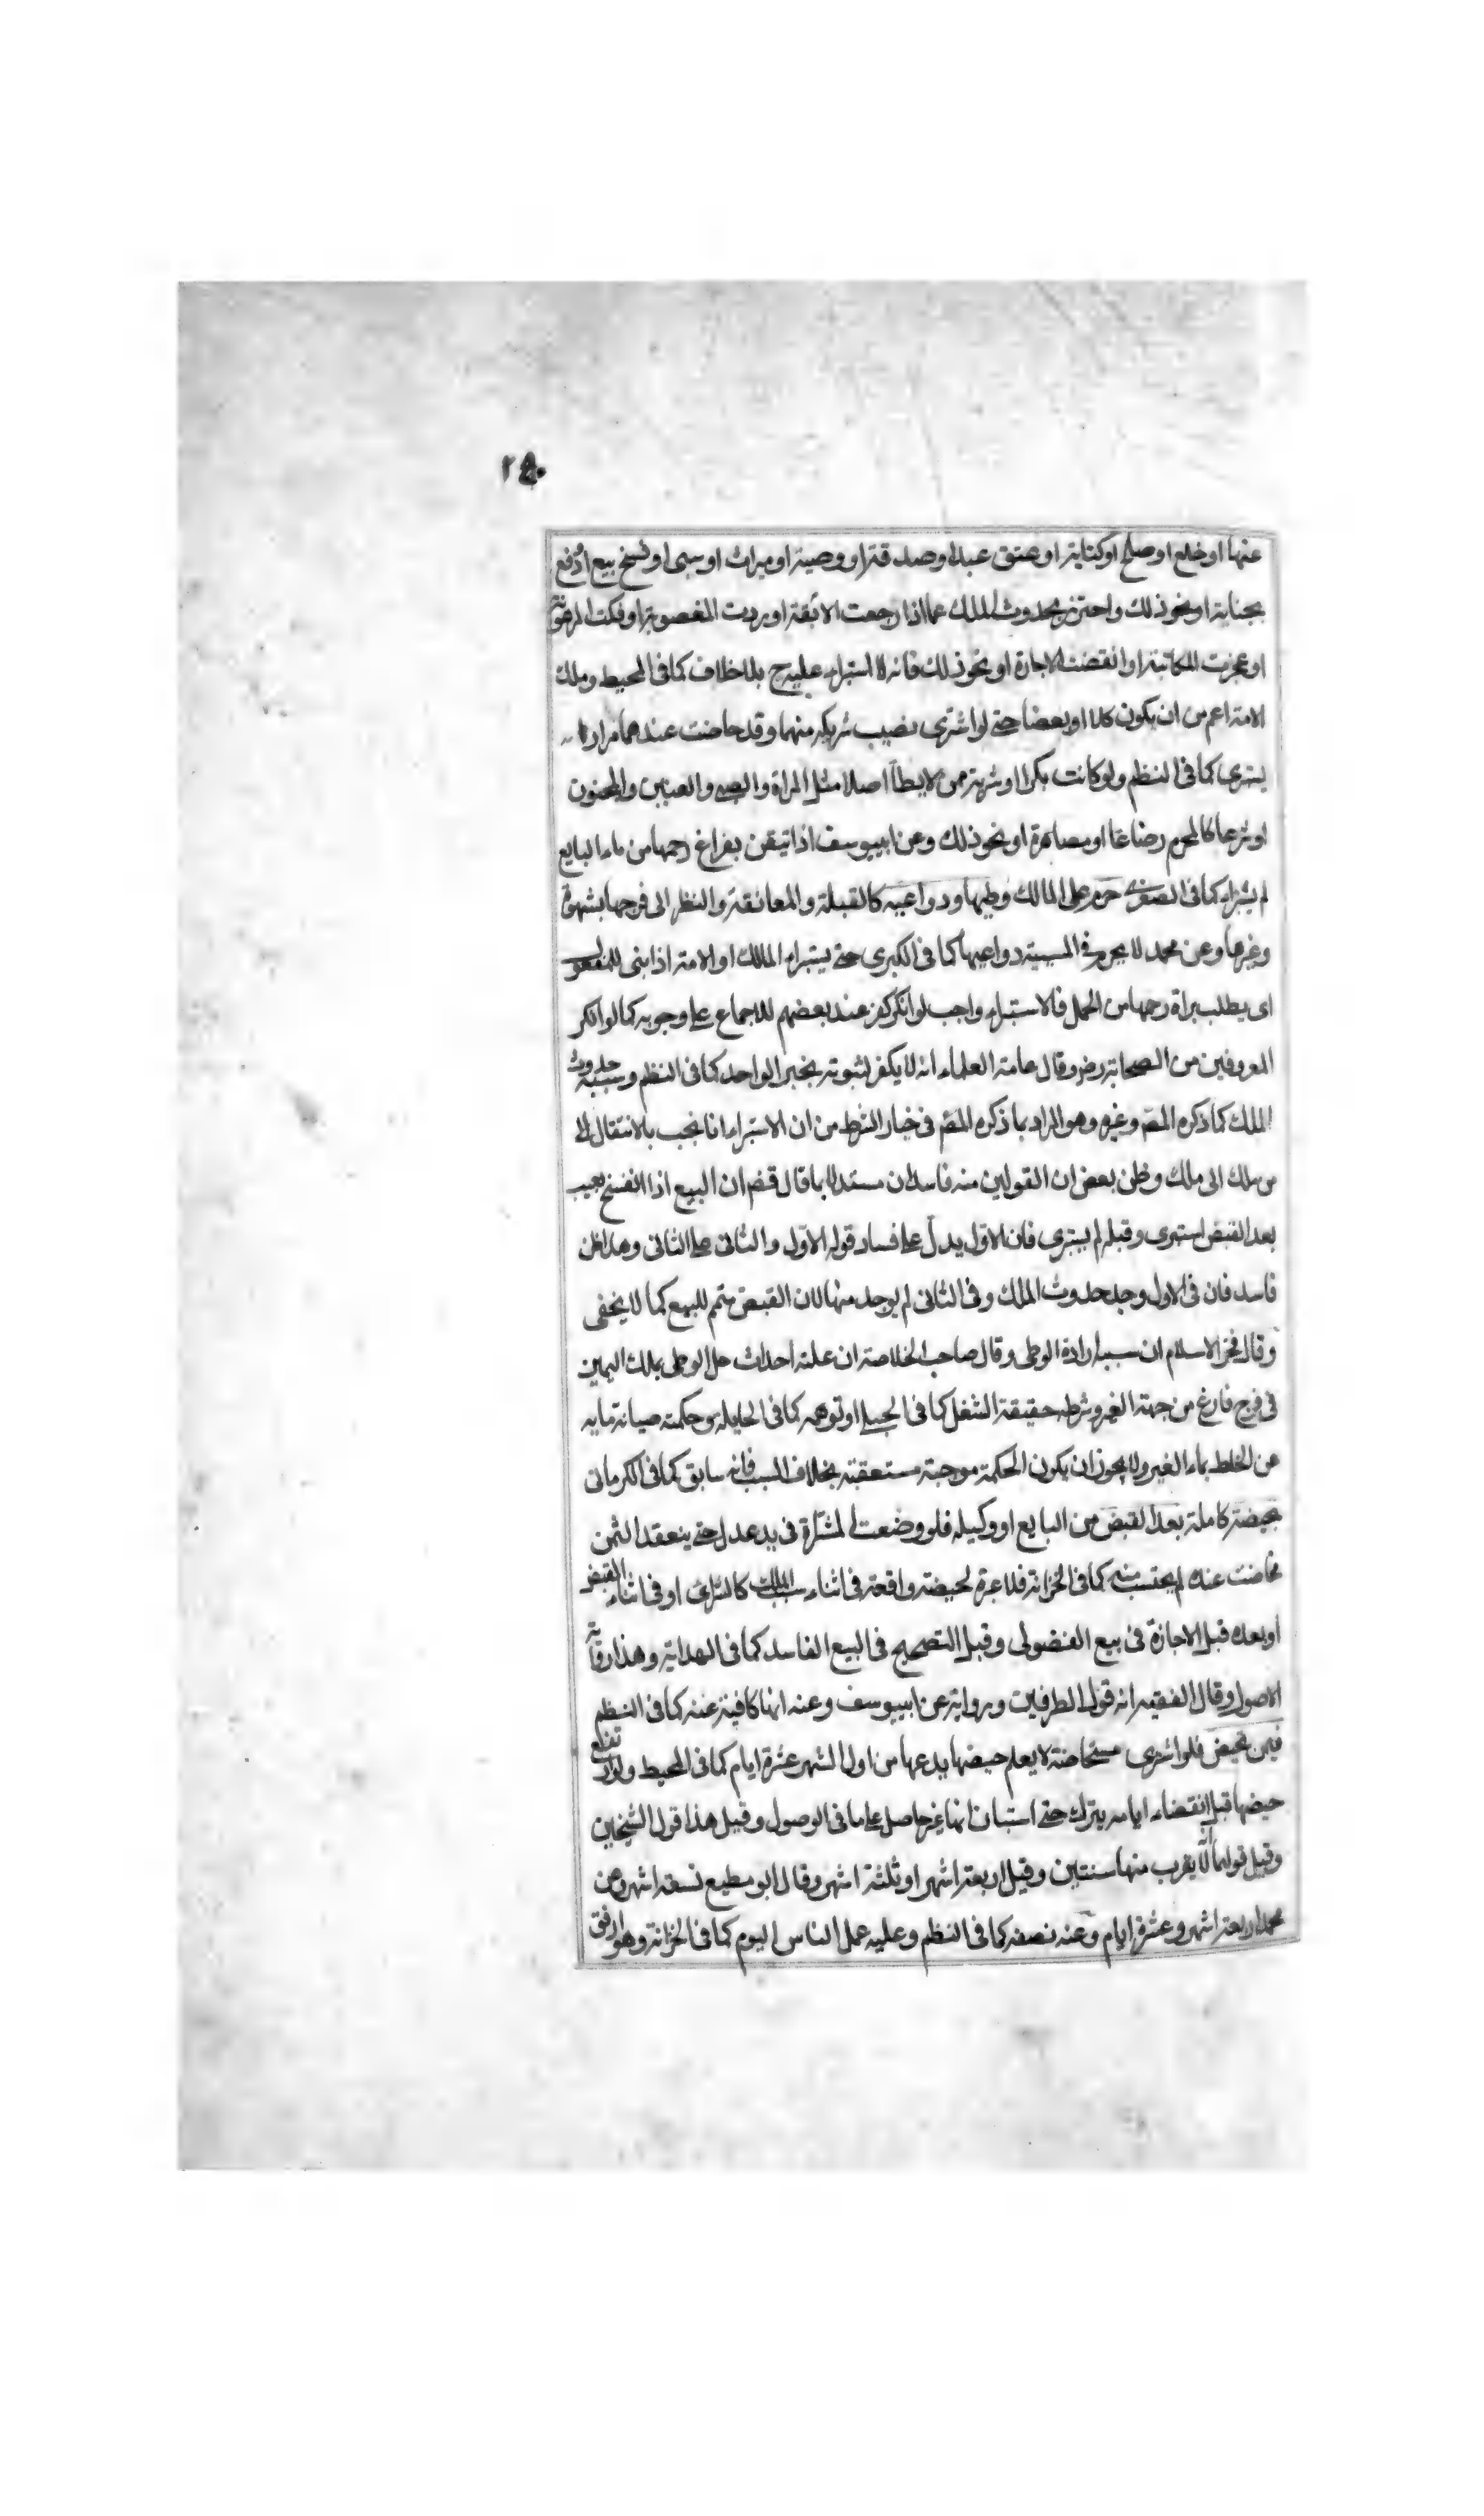 ٢٥٠
عنها او خلع او صلح او كتابة او عتق عبد او صدقة او وصية او ميراث او سبى او فسخ بيع او دفع
بجناية او نحو ذلك واحترز بحدوث الملك عما اذا رجعت الابقة او ردت المغصوبة او فكت المرهونة
او عجزت المكاتبة او انقضت الاجارة او نحو ذلك فانه لا استبراء عليه ح بلا خلاف كما فى المحيط وملك
الامة اعم من ان يكون كلا او بعضا حتى لو اشترى نصيب شريكه منهما وقد حاضت عندهما مرارا
يستبرى كما فى النظم ولو كانت بكرا او شرية من لا يطأ اصلا مثل المراة والصبى والعنين والمجنون
او شرعا كالمحرم رضاعا او مصاهرة او نحو ذلك وعن ابييوسف اذا تيقن بفراغ رحمها من ماء البايع
لم يستبراء كما فى الصغرى حرم على المالك وطيها ودواعيه كالقبلة والمعانقة والنظر الى فرجها بشهوة
وغيرها وعن محمد لا يحرم فى المسبية دواعيها كما فى الكبرى حتى يستبراء المالك او الامة اذا بنى للمفعول
اى يطلب براة رحمها من الحمل فالاستبراء واجب لو انكر كفر عند بعضهم للاجماع على وجوبه كما لو انكر
المعروفين من الصحابة رض وقال عامة العلماء انه لا يكفر لثبوته بخبر الواحد كما فى النظم وسببه حدوث
الملك كما ذكره المص وغيره وهو المراد بما ذكره المص فى خيار الشرط من ان الاستبراء انما يجب بالانتقال
من ملك الى ملك وظن بعض ان القولين منه فاسدان مستدلا بما قال قض ان البيع اذا انفسخ بعيب
بعد القبض استبرى وقبله لم يستبرى فان الاول يدل على فساد قوله الاول والثانى على الثانى وهذا ظن
فاسد فان فى الاول وجد حدوث الملك وفى الثانى لم يوجد منها لان القبض متمم للبيع كما لا يخفى
وقال فخر الاسلام ان سببه ارادة الوطى وقال صاحب الخلاصة ان علته احداث حل الوطى بملك اليمين
فى فرج فارغ من جهة الغير وشرطه حقيقة الشغل كما فى الحبلى او توهمه كما فى الحايل وحكمته صيانة مايه
عن الخلط بماء الغير ولا يجوز ان يكون الحكمة موجبة مستعقبة بخلاف السبب فانه سابق كما فى الكرمانى
بحيضة كاملة بعد القبض من البايع او وكيله فلو وضعت المشتراة فى يد عدل حتى ينعقد الثمن
فحاضت عنده لم يحتسب منه كما فى الخزانة فلا عبرة لحيضة واقعة فى اثناء سبب الملك كالشراى او فى اثناء القبض
او بعده قبل الاجازة فى بيع الفضولى وقبل التصحيح فى البيع الفاسد كما فى الهداية وهذا رواية
الاصول وقال الفقيه انه قول الطرفين ورواية عن ابييوسف وعنه انها كافية عنه كما فى النظم
فيمن تحيض فلو اشترى مستحاضة لا يعلم حيضها يدعها من اول الشهر عشرة ايام كما فى المحيط ولو ارتفع
حيضها قبل انقضاء ايامه يترك حتى استبان انها غير حاصل على ما فى الوصول وقيل هذا قول الشيخين
وقيل قولهما انه لا يقرب منها سنتين وقيل اربعة اشهر او ثلثة اشهر وقال ابو مطيع تسعة اشهر وعن
محمد اربعة اشهر وعشرة ايام وعنه نصفه كما فى النظم وعليه عمل الناس اليوم كما فى الخزانة وهو ارفق